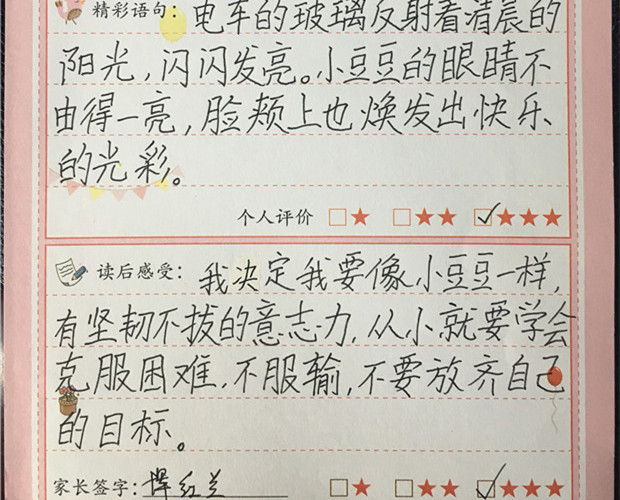 精彩语句：电车的玻璃反射着清晨的
阳光，闪闪发亮。小豆豆的眼睛不
由得一亮，脸颊上也焕发出快乐
的光彩。
个人评价 □★ □★★ ☑★★★
读后感受：我决定我要像小豆豆一样，
有坚韧不拔的意志力，从小就要学会
克服困难，不服输，不要放齐自己
的目标。
家长签字：红兰 □★ □★★ ☑★★★